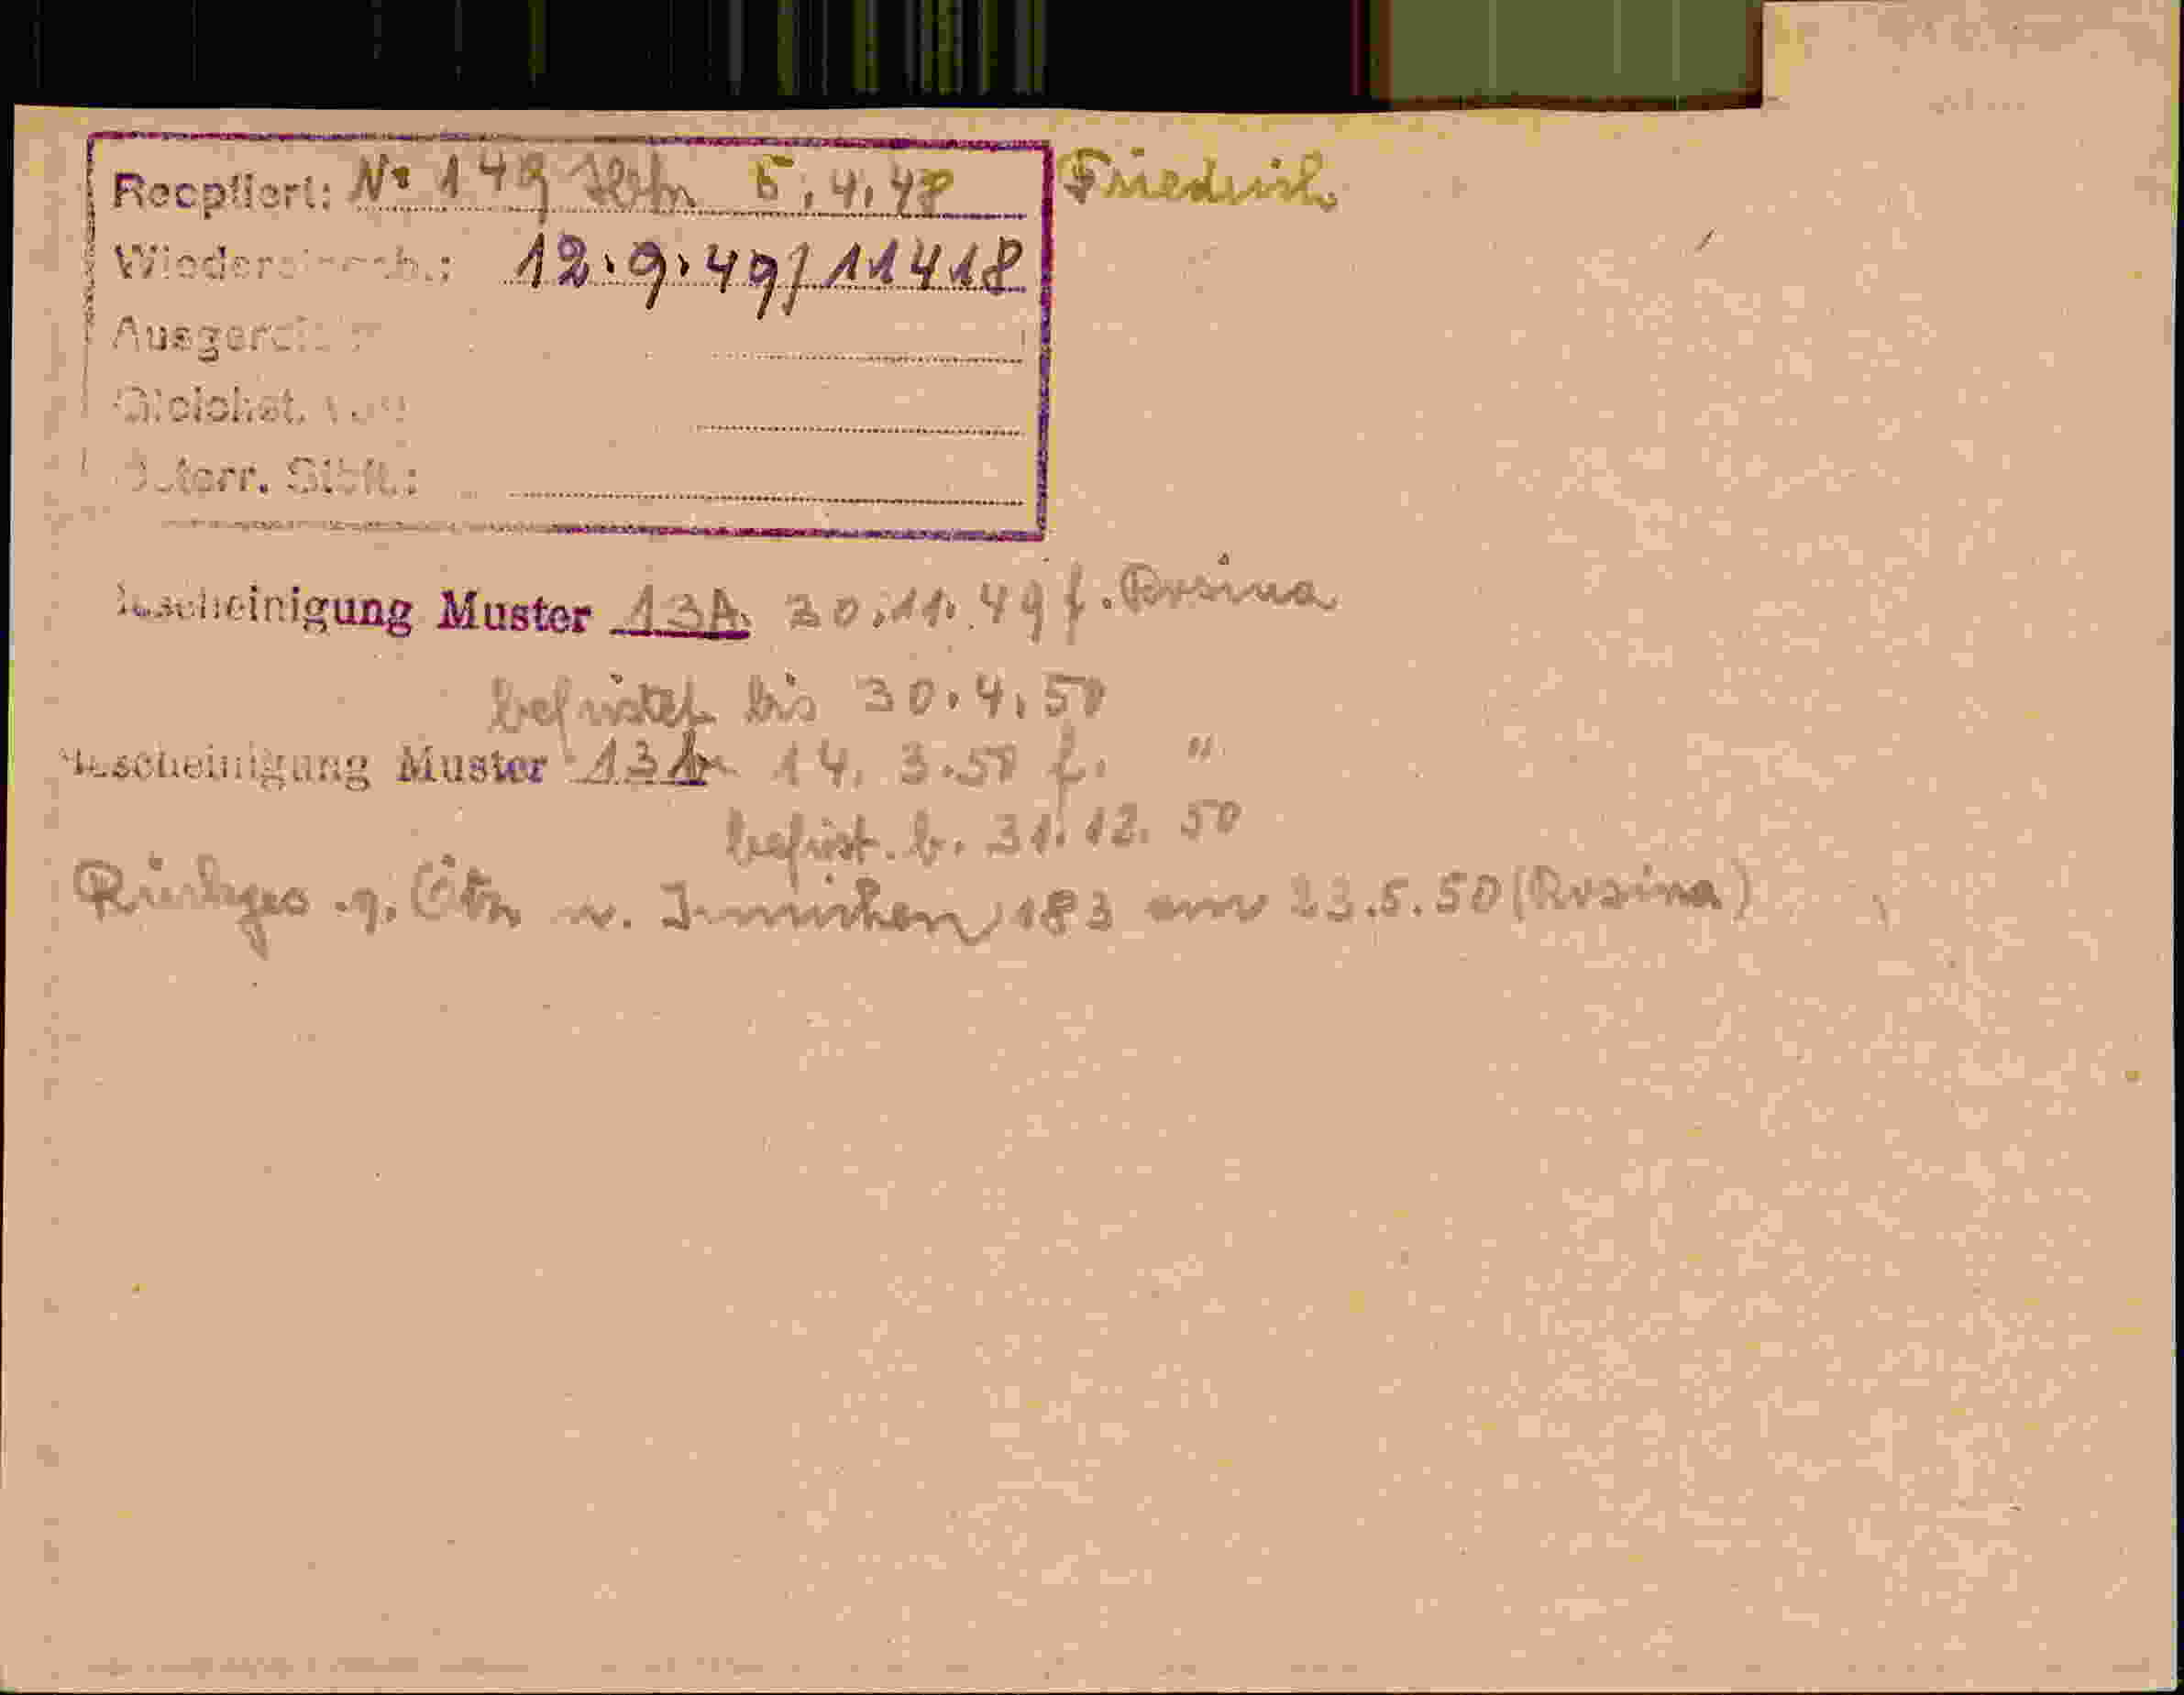 Reoptiert: No 149 5.4.48 Friedrich
Wiedereinerb.: 12.9.49/11418
Ausgereist:
Gleichst. v
Österr. Stbft.:
Bescheinigung Muster 13A. 30.11.49 f. Rosina
befristet bis 30.4.50
Bescheinigung Muster 13A 14. 3.50 f. "
befrist. b. 31.12.50
n. Innichen 183 am 23.5.50 (Rosina)